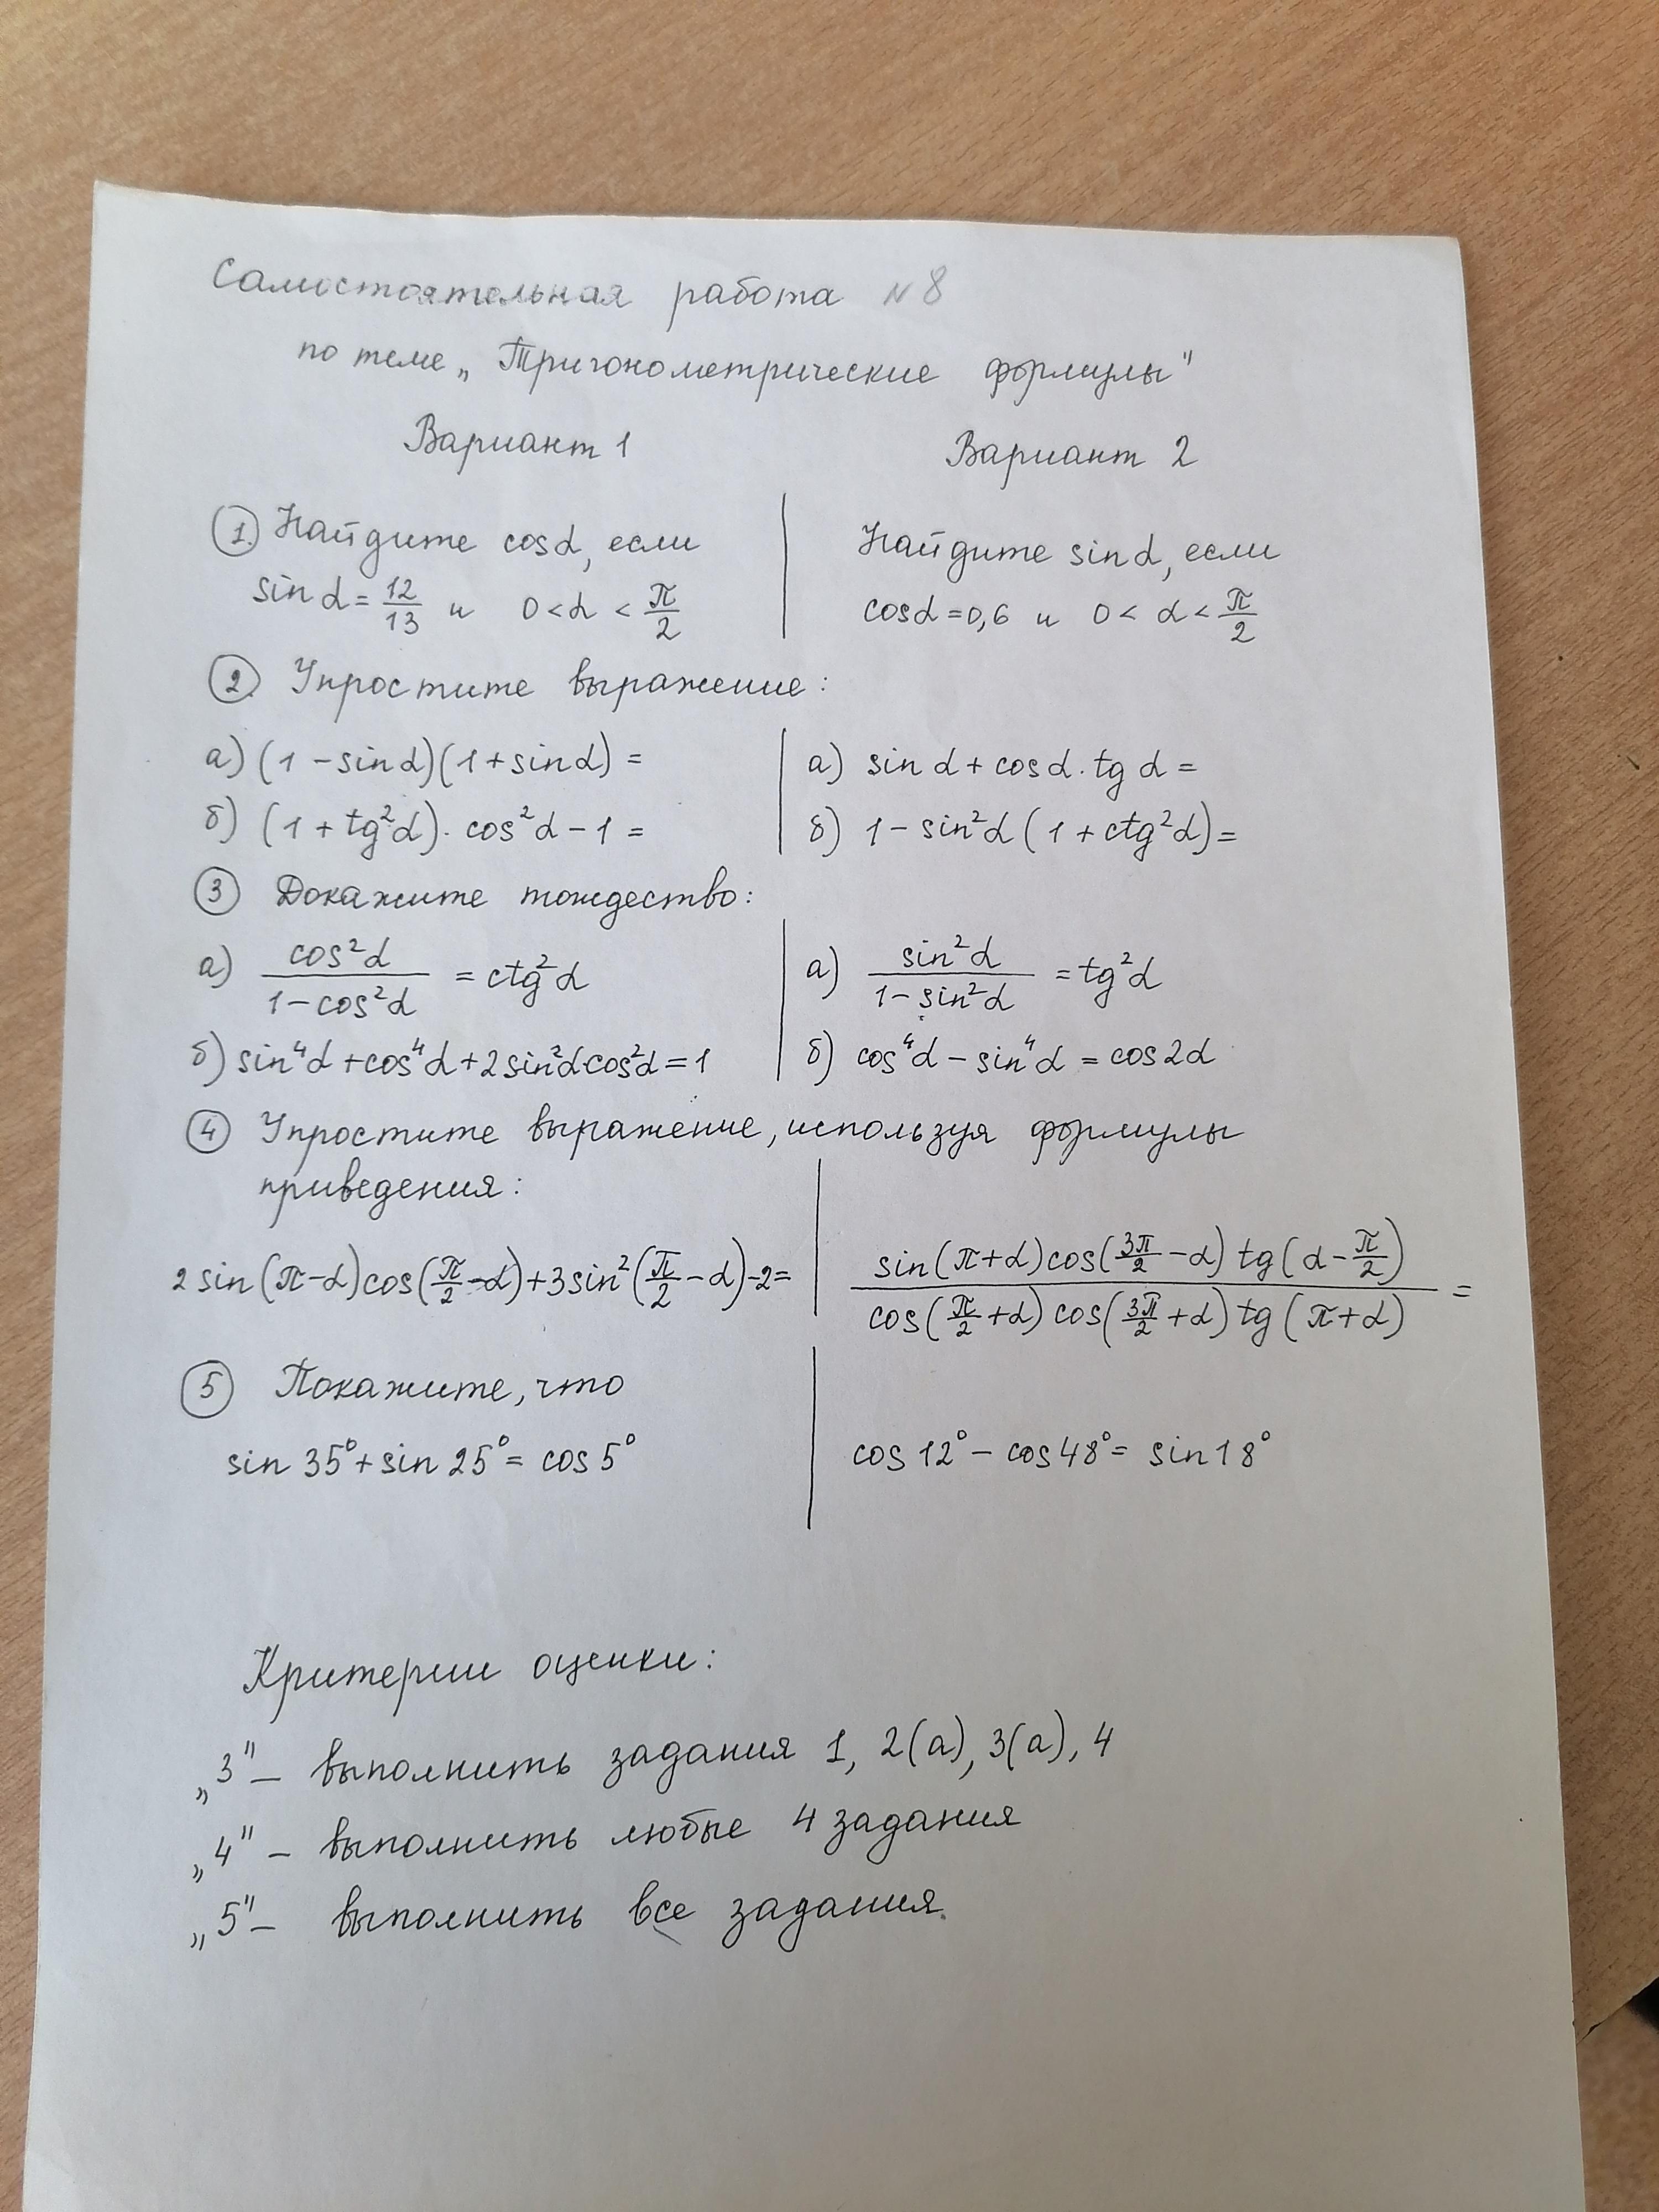 Самостоятельная работа №8
по теме „Тригонометрические формулы"
Вариант 1
Вариант 2
1. Найдите cosα, если
sin α = 12/13 и 0<α<π/2
Найдите sin α, если
cosα=0,6 и 0<α<π/2
2. Упростите выражение:
а) (1 - sin α)(1 + sin α) =
б) (1 + tg²α) · cos²α - 1 =
а) sin α + cos α · tg α =
б) 1 - sin²α (1 + ctg²α) =
3 Докажите тождество:
а) cos²α / (1 - cos²α) = ctg²α
б) sin⁴α + cos⁴α + 2 sin²α cos²α = 1
а) sin²α / (1 - sin²α) = tg²α
б) cos⁴α - sin⁴α = cos 2α
4 Упростите выражение, используя формулы
приведения:
2 sin(π-α) cos(π/2-α) + 3 sin²(π/2-α) - 2 =
sin(π+α) cos(3π/2-α) tg(α-π/2)
cos(π/2+α) cos(3π/2+α) tg(π+α) =
5 Покажите, что
sin 35° + sin 25° = cos 5°
cos 12° - cos 48° = sin 18°
Критерии оценки:
„3" – выполнить задания 1, 2(а), 3(а), 4
„4" – выполнить любые 4 задания
„5" – выполнить все задания.